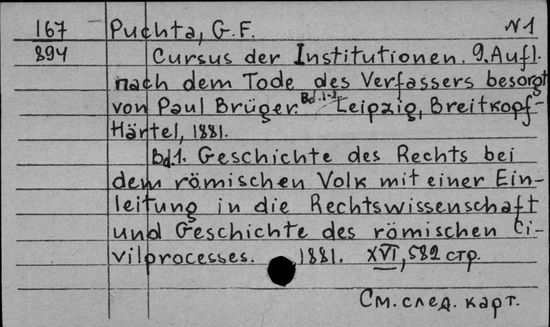 167 Puchta, G.F. N 1
894 Cursus der Institutionen. 9. Aufl.
nach dem Tode des Verfassers besorgt
von Paul Brüger. Bd. 1-2 Leipzig, Breitkopf-
Härtel, 1881.
Bd 1. Geschichte des Rechts bei
dem römischen Volk mit einer Ein-
leitung in die Rechtswissenschaft
und Geschichte des römischen Ci-
vilprocesses. 1881. XVI, 582 стр.
См. след. карт.